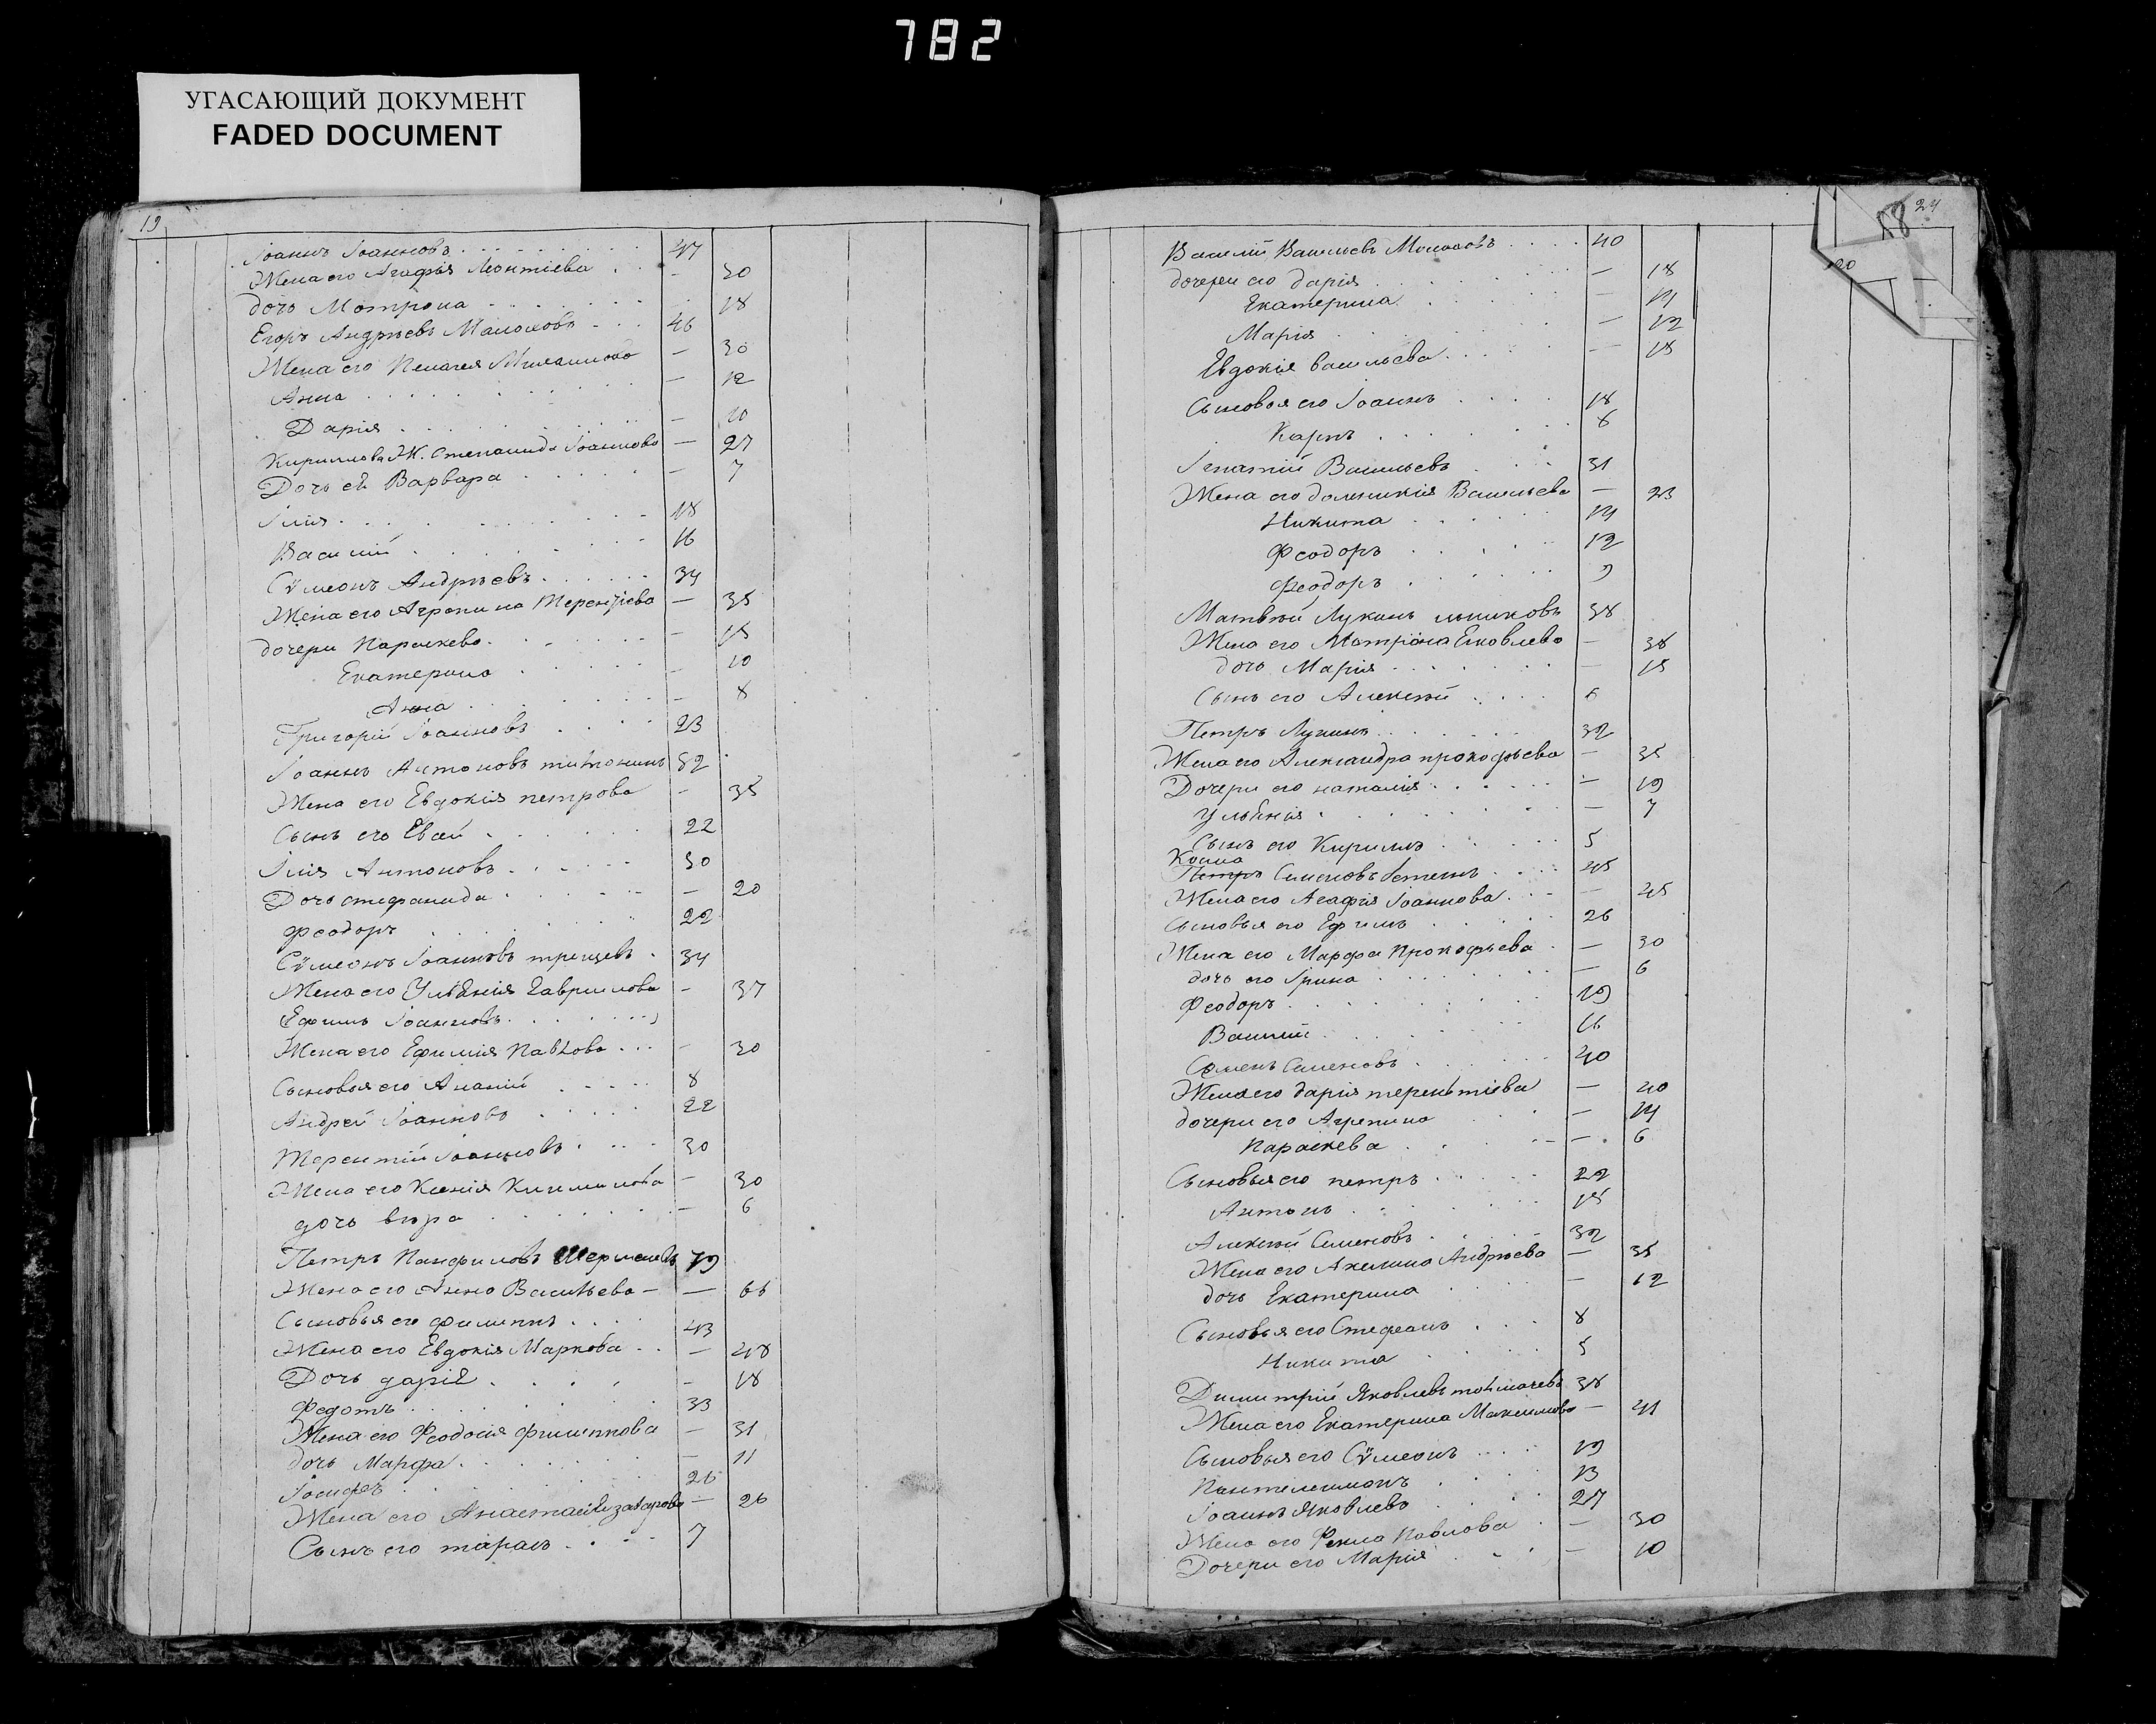 782
УГАСАЮЩИЙ ДОКУМЕНТ
FADED DOCUMENT
19
Іоаннъ Іоанновъ 47
Жена его Агафія Леонтіева — 50
дочь Матрона 18
Егоръ Андрѣевъ 46
Жена его Пелагея — 30
Анна — 12
Дарія — 10
Кириллова Ж. Степанида Іоаннова — 27
Дочь ей Варвара — 7
Илія 18
Василій 16
Сѵмеонъ Андрѣевъ 34
Жена его Агрепина Терентіева — 35
дочери Параскева — 15
Екатерина — 10
Анна — 8
Григорій Іоанновъ 23
Іоаннъ Антоновъ титонинъ 52
Жена его Евдокія петрова — 35
Сынъ его 22
Илія Антоновъ 50
Дочь стефанида — 20
Феодоръ 22
Сѵмеонъ Іоанновъ 34
Жена его Ульянія Гаврилова — 37
Ефимъ Іоанновъ
Жена его Ефимія Павлова — 30
Сыновья его Ананій 8
Андрей Іоанновъ 22
Терентій Іоанновъ 30
Жена его Ксенія — 30
дочь вѣра — 6
Петръ Панфиловъ 79
Жена его Анна Васильева — 66
Сыновья его филиппъ 43
Жена его Евдокія Маркова — 48
Дочь дарія — 18
Федотъ 33
Жена его Феодосія филиппова — 31
дочь Марфа — 11
Іосифъ 26
Жена его Анастасія — 26
Сынъ его тарасъ 7
24
18
20
Василій Васильевъ 40
дочери его дарія — 18
Екатерина — 14
Марія — 12
Евдокія васильева — 15
Сыновья его Іоаннъ 18
Карпъ 8
Игнатій Васильевъ 31
Жена его домникія Васильева — 23
Никита 14
Феодоръ 12
Феодоръ 9
Матвѣй Лукинъ 38
Жена его Матрона Яковлева — 38
дочь Марія — 15
Сынъ его Алексѣй 6
Петръ Лукинъ 32
Жена его Александра прокофьева — 35
Дочери его наталія — 19
Ульянія — 7
Сынъ его Кирилъ 5
Косма
Петръ Симеоновъ 45
Жена его Агафія Іоаннова — 45
Сыновья его Ефимъ 26
Жена его Марфа Прокофьева — 30
дочь его Ирина — 6
Феодоръ 19
Василій 16
Семенъ Семеновъ 40
Жена его дарія терентіева — 40
дочери его Агрепина — 14
Параскева — 6
Сыновья его петръ 22
Антонъ 18
Алексѣй Семеновъ 32
Жена его Акелина Андрѣева — 35
дочь Екатерина — 12
Сыновья его Стефанъ 8
Никита 5
Димитрій Яковлевъ толмачевъ 38
Жена его Екатерина Максимова — 41
Сыновья его Сѵмеонъ 19
Пантелеимонъ 13
Іоаннъ Яковлевъ 27
Жена его Фекла Павлова — 30
Дочери его Марія — 10